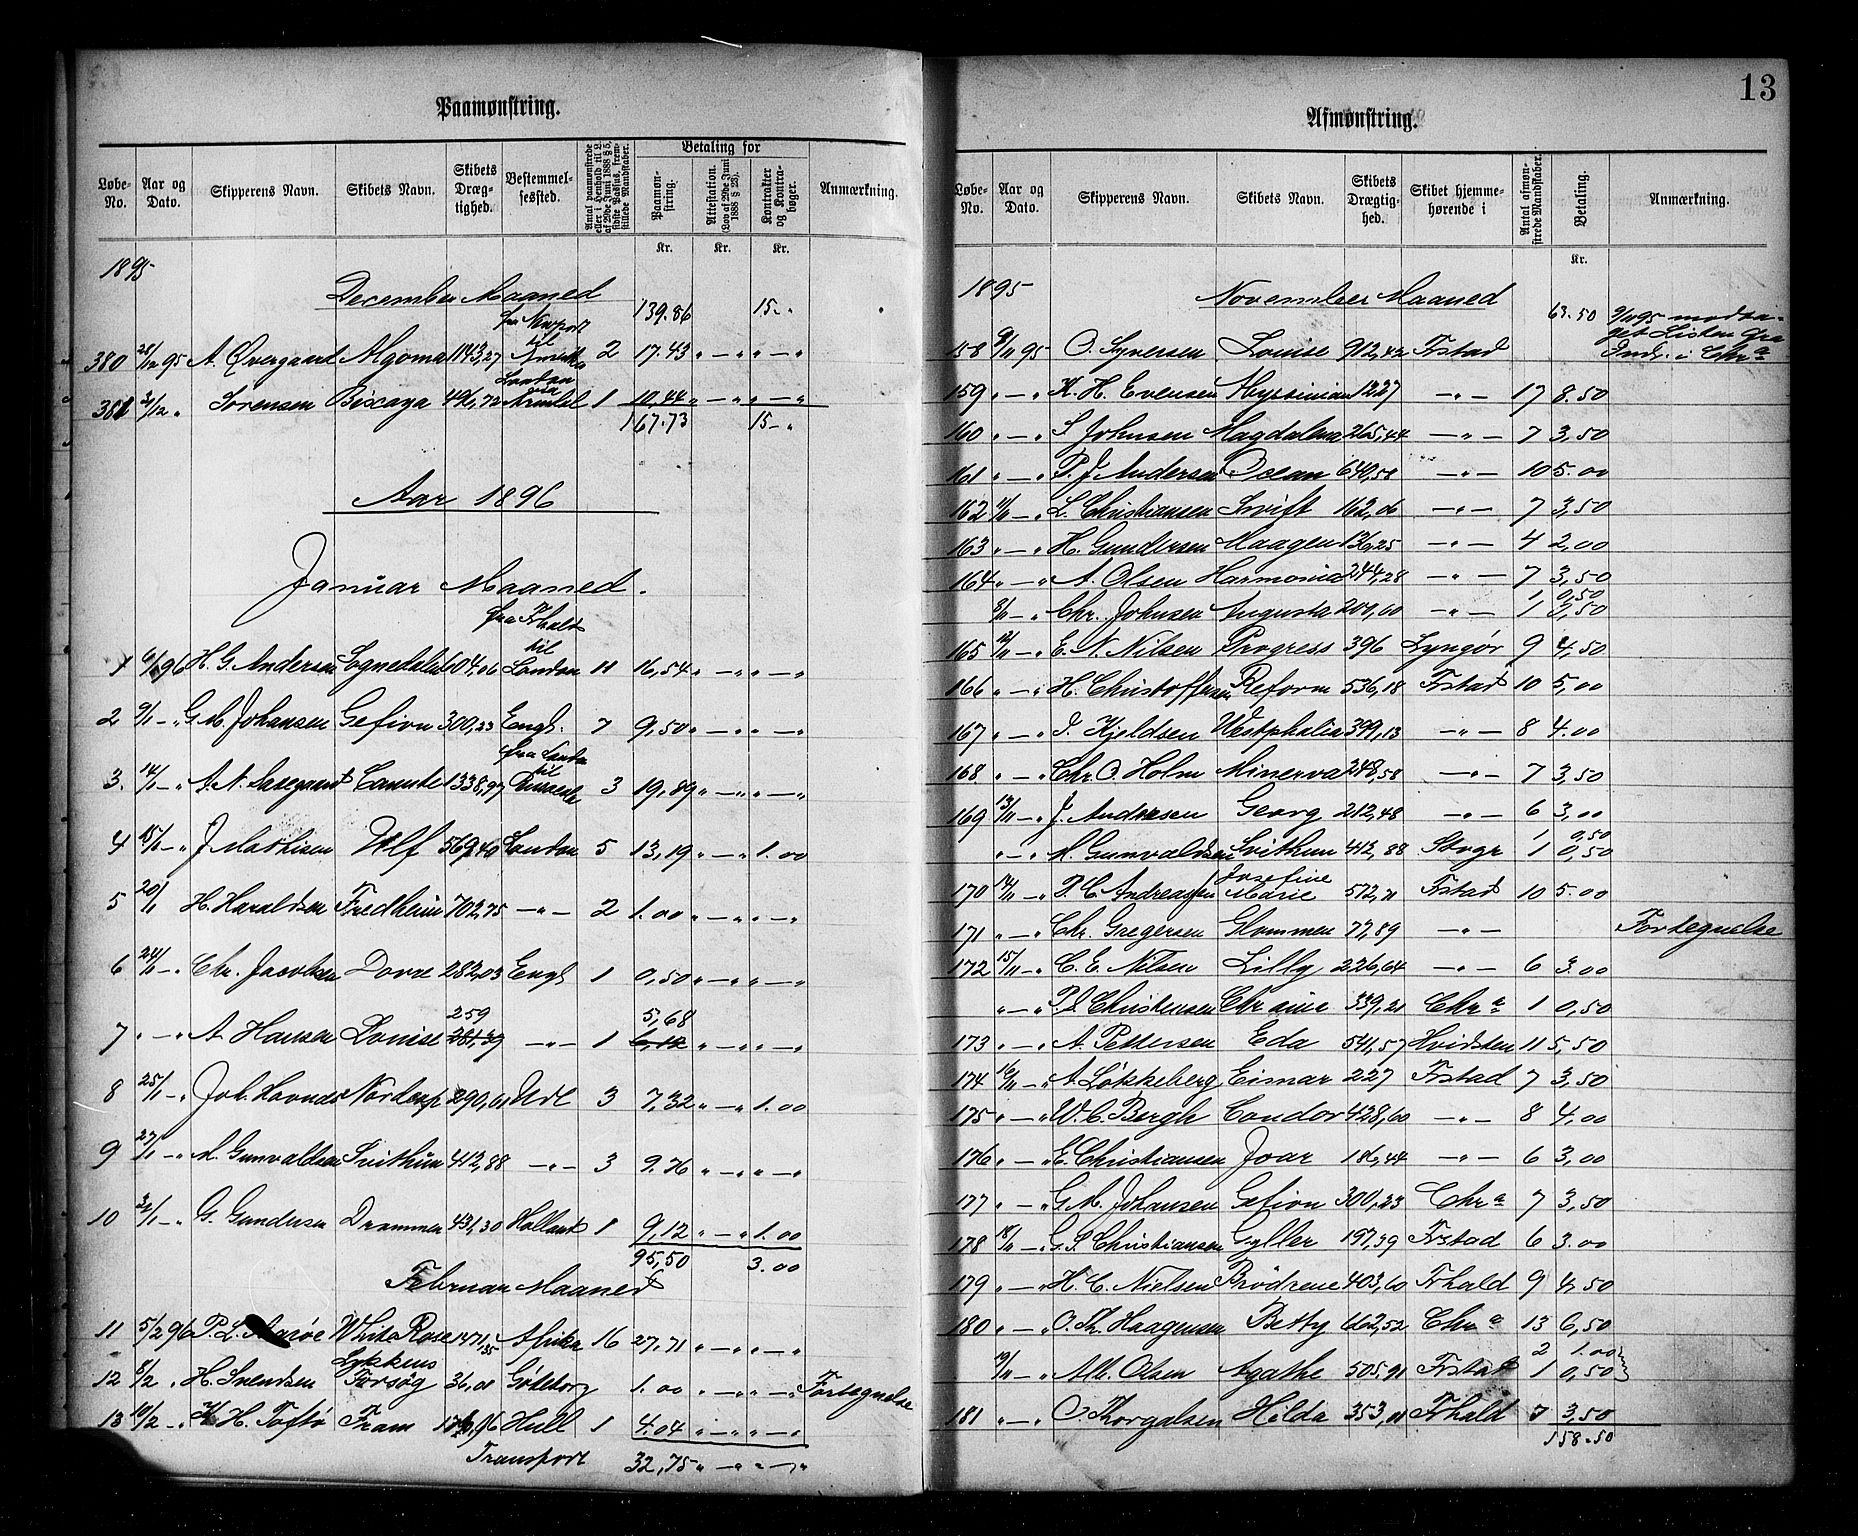 13
Paamønstring.
Løbe-No. Aar og Dato. Skipperens Navn. Skibets Navn. Skibets Drægtighed. Bestemmelsessted. Antal paamønstrede eller i Henhold til L. af 29de Juni 1888 § 5, sidste Passus, fremstillede Mandskaber. Betaling for Paamønstring. Attestation. (Lov af 29de Juni 1888 § 23). Kontrakter og Kontrabøger. Anmærkning.
Kr. Kr. Kr.
1895
December Maaned 139.86 15 "
fra Newport til
380 28/12 95 A. Øvergaard Algoma 1143,27 2 17.43 " — " — "
London via
381 31/12 " Sørensen Biscaya 491,72 Arendal 1 10.44 " — " — "
167.73 15 "
Aar 1896
Januar Maaned.
fra Frhald til
1 6/1 96 H. G. Andersen Sognedalen 604,06 London 11 16,54 " — " — "
2 9/1 — " G. M. Johansen Gefion 300,23 Engl. 7 9,50 " — " — "
fra London til
3. 14/1 — " A. N. Saxegaard Canute 1338,97 3 19,89 " — " — "
4 15/1 — " J. Mathisen Ulf 569,40 London 5 13,19 " — " 1.00
5 20/1 H. Haraldsen Fredheim 702,75 — " — 2 1.00 " — " — "
6 24/1 — " Chr. Jacobsen Dovre 282,03 Engl 1 0,50 " — " — "
259 5,68
7 " — " A. Hansen Louise 281,39 — " — 1 6,12 " — " — "
8 25/1 — " Joh. Nordenp 290,61 Udl 3 7,32 " — " 1.00
9 27/1 — " M. Gunvaldsen Svithun 412,88 — " — 3 9.76 " — " — "
10 31/1 — " G. Gundersen Drammen 431,30 Holland 1 9,12 " — " 1.00
95,50 3.00
Februar Maaned
11 5/2 96 P. L. White Rose 1471,35 Afrika 16 27,71 " — " — "
12 8/2 " H. Svendsen Lykkens Forsøg 36,01 Göteborg 1.00 " — " — " Fortegnelse
13 10/2 — " H. H. Toftø Fram Hull 1 4,04 " — " — "
Transport 32,75 " — " — "
Afmønstring.
Løbe-No. Aar og Dato. Skipperens Navn. Skibets Navn. Skibets Drægtighed. Skibet hjemmehørende i Antal afmønstrede Mandskaber. Betaling. Anmærkning.
Kr.
1895
November Maaned 63.50 9/11 95 modtaget Listen fra
158 9/11 95 O. Syversen Louise 912,42 Frstad Indr. i Chra
159 " — " K. H. Evensen Abyssinian 1227 — " — 17 8.50
160 " — " S. Johnsen Magdalena 265,44 — " — 7 3,50
161 " — " P. J. Andersen Ocean 640,58 — " — 10 5.00
162 11/11 — " L. Christiansen Svift 162,06 — " — 7 3,50
163 " — " H. Gundersen Maagen 136,25 — " — 4 2,00
164 " — " A. Olsen Harmonia 244,28 — " — 7 3,50
1 0,50
8/11 — " Chr. Johnsen Augusta 200,60 — " — 1 0,50
165 12/11 — " E. N. Nilsen Progress 396 Lyngør 9 4,50
166 " — " H. Christoffersen Reform 536,18 Frstad 10 5,00
167 " — " J. Kjeldsen Westphalia 399,13 — " — 8 4.00
168 " — " Chr. O. Holm Minerva 248,58 — " — 7 3,50
169 13/11 — " J. Andresen Georg 212,48 — " — 6 3,00
1 0,50
" — " M. Gunvaldsen Svithun 412,88 Stvgr 1 0,50
170 14/11 — " P. C. Andreassen Josefine Marie 572,71 Frstad 10 5.00
171 " — " Chr. Gregersen Glommen 77,89 — " — Fortegnelse
172 15/11 — " C. E. Nilsen Lilly 226,64 — " — 6 3.00
" — " P. J. Christensen 339,21 Chra 1 0,50
173 " — " A. Pettersen Eda 541,57 Hvidsten 11 5,50
174 16/11 — " A. Løkkeberg Eimar 227 Frstad 7 3,50
175 " — " W. C. Bergh Condor 428,60 — " — 8 4,00
176 " — " E. Christiansen Ivar 186,44 — " — 6 3,00
177 " — " G. M. Johansen Gefion 300,23 Chra 7 3,50
178 18/11 — " G. S. Christiansen Gyller 197,39 Frstad 6 3.00
179 " — " H. C. Nielsen Brødrene 403,60 Frhald 9 4,50
180 " — " O. Th. Haagensen Betty 662,52 Chra 13 6,50
2 1.00
19/11 — " Alb. Olsen Agathe 505,91 Frstad 1 0,50
181 " — " O. Thorgalsen Hilda 353,01 Frhald 7 3,50
158.50